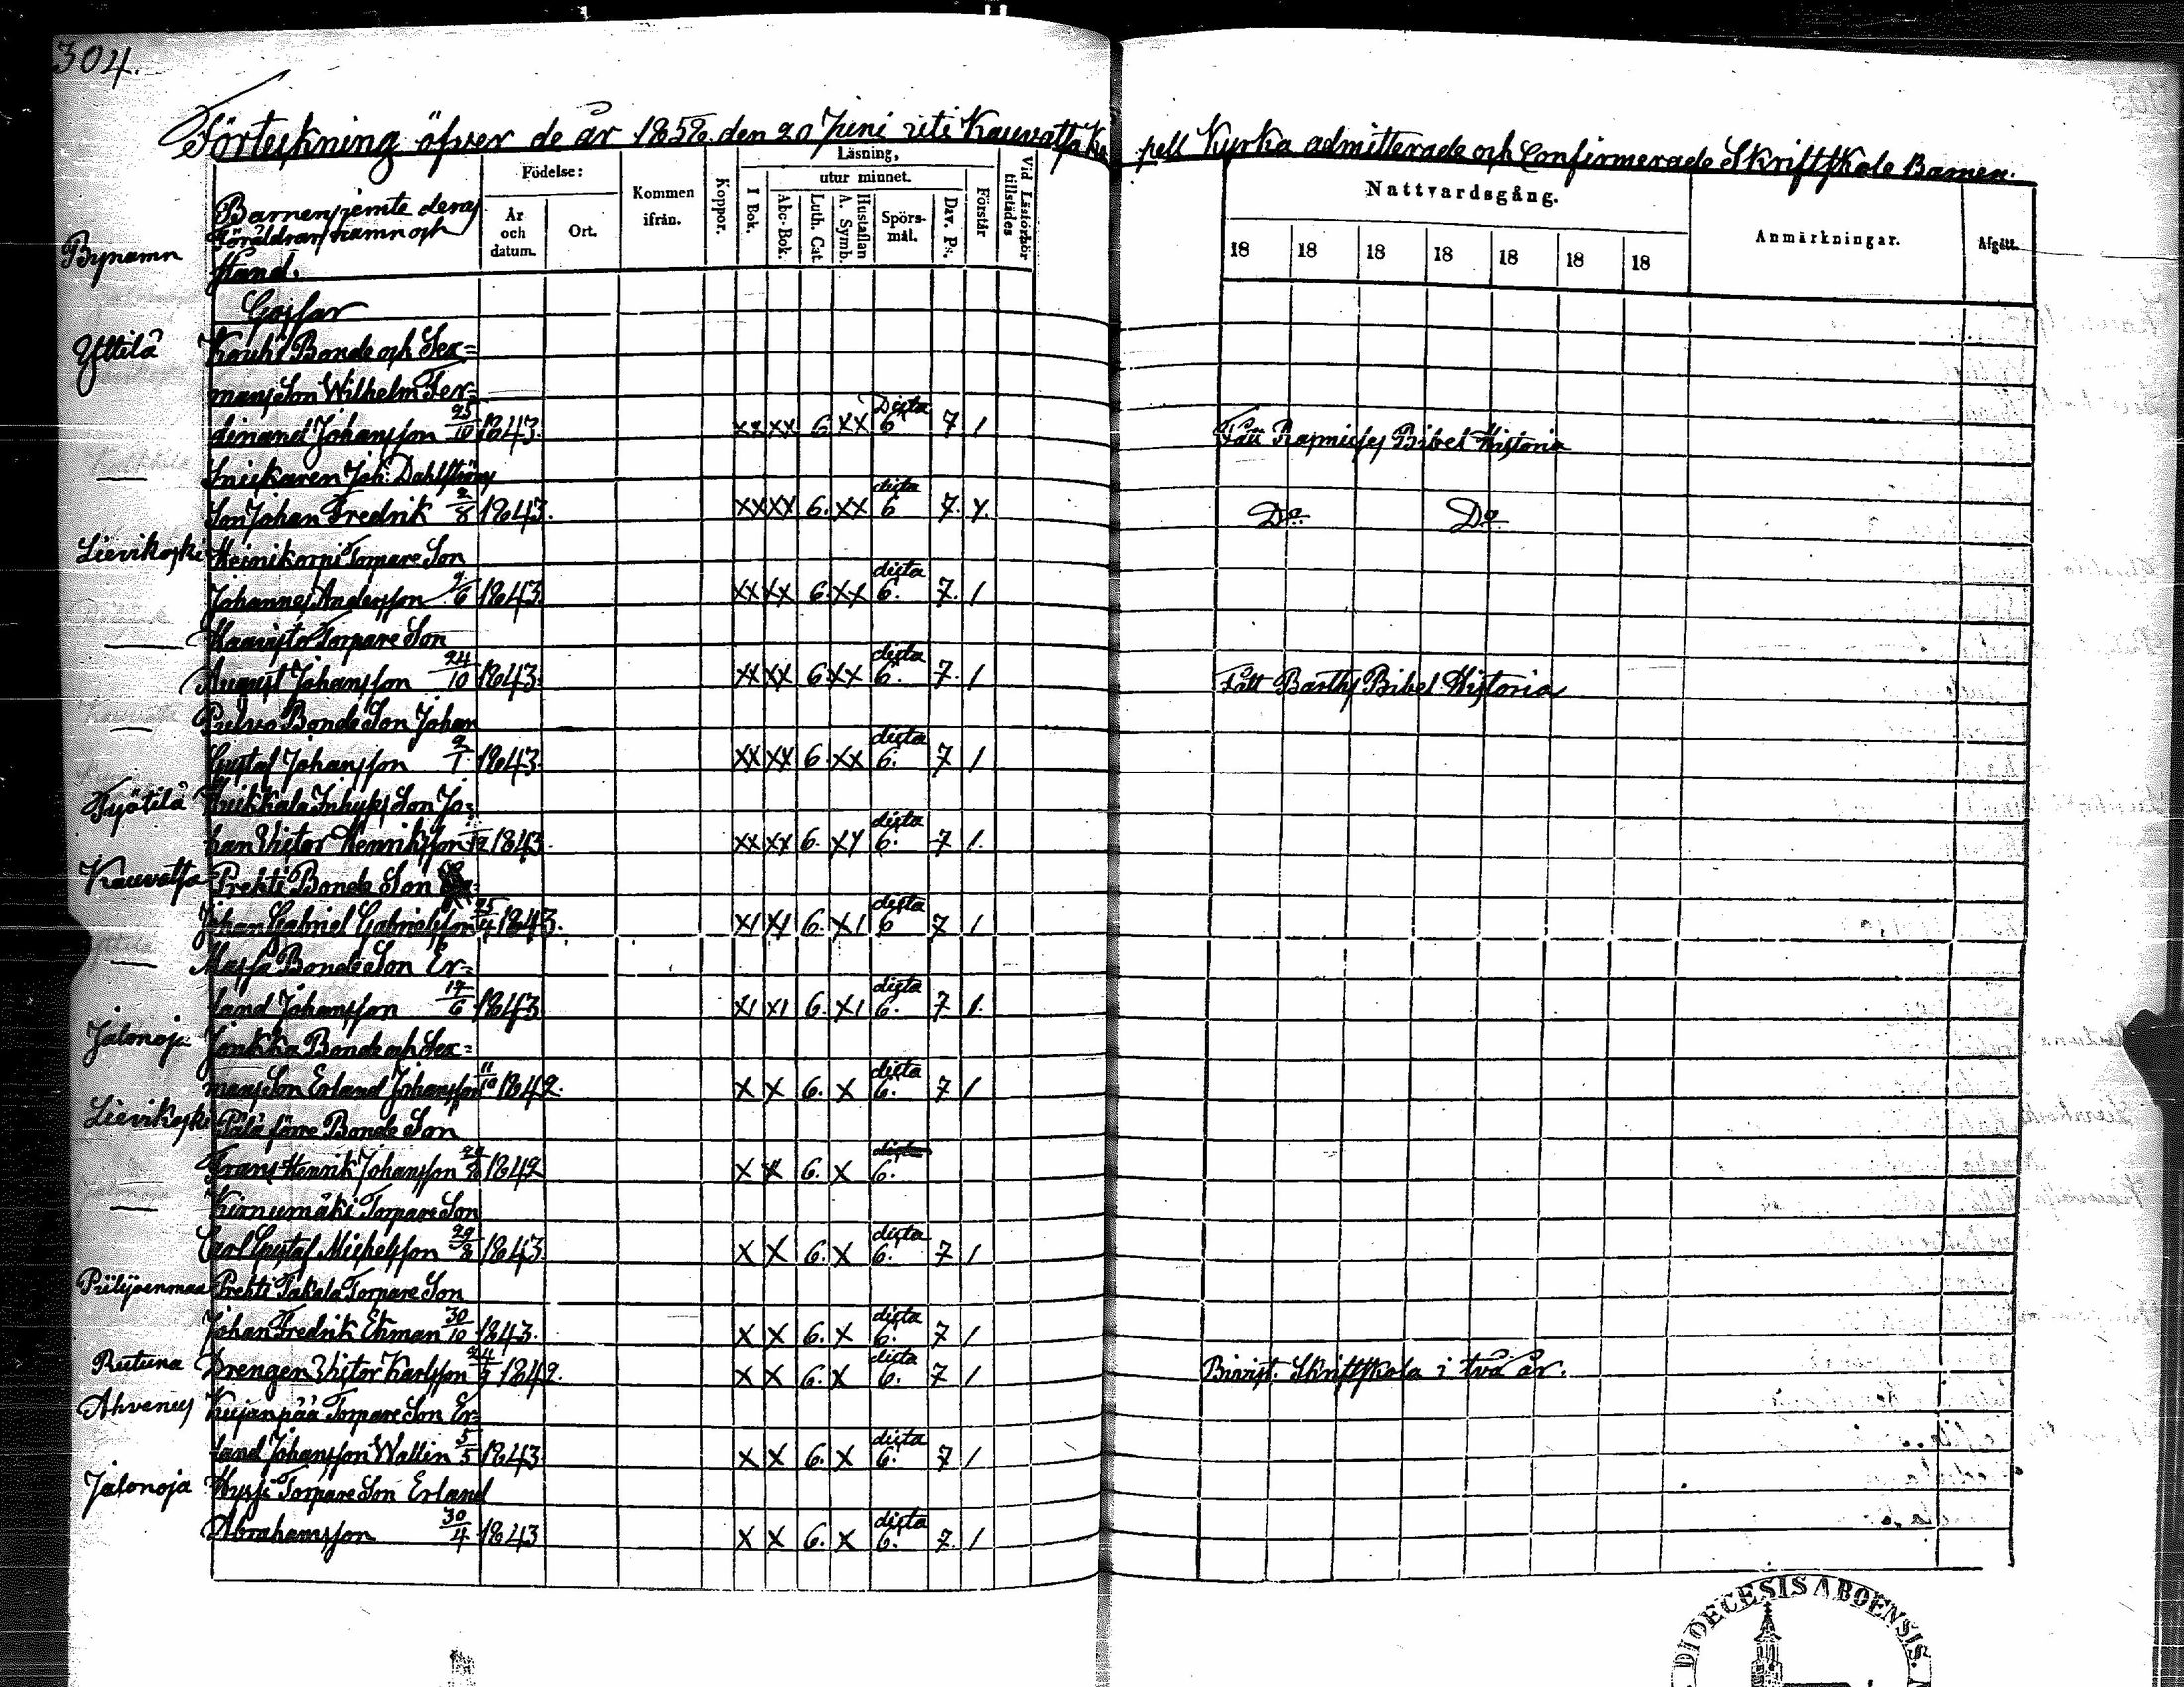 304.
Förteckning öfver de år 1858. den 20 Juni uti Kauvatsa Ka pell Kyrka admitterade och Confirmerade Skriftskole Barnen.
Bynamn
Barnens jemte deras
Föräldrars namn och
stand.
Födelse:
År och datum.
Ort.
Kommen ifrån.
Koppor.
Läsning,
I Bok.
utur minnet.
Abc-Bok.
Luth. Cat
Hustaflan A. Symb.
Spörsmål.
Dav. Ps.
Förstår
Vid Läsförhör tillstädes
Nattvardsgång.
18 18 18 18 18 18 18
Anmärkningar.
Afgått.
Gossar
Yttilä Kouhi Bonde och Sex=
mans Son Wilhelm Fer=
dinand Johansson 25/10 1843. xx xx 6 xx Dicta 6 7 1 Fått Bibel Historia
— Snickaren Joh: Dahlströms
Son Johan Fredrik 2/8 1843. xx xx 6. xx dicta 6 7. 1. Do Do
Lievikoski Heinikorpi Torpare Son
Johannes Andersson 9/6 1843. xx xx 6. xx dicta 6. 7. 1
— Haavisto Torpare Son
August Johansson 24/10 1843. xx xx 6 xx dicta 6. 7. 1 Fått Barths Bibel Historia
— Bonde Son Johan
Gustaf Johansson 2/1 1843. xx xx 6. xx dicta 6. 7 1
Kyötilä Inhyses Son Jo=
han Victor Henriksson 1843. xx xx 6. xx dicta 6. 7 1.
Kauvatsa Prehti Bonde Son
Johan Gabriel Gabrielsson 25/4 1843. x1 x1 6. x1 dicta 6 7 1
— Massa Bonde Son Er=
land Johansson 17/6 1843 x1 x1 6. x1 dicta 6. 7 1.
Jalonoja Jonkka Bonde och Sex=
mans Son Erland Johansson 11/10 1842. x x 6. x dicta 6. 7 1
Lievikoski Pälä förre Bonde Son
Frans Henrik Johansson 1842 x x 6. x dicta 6.
— Kirnumäki Torpare Son
Carl Gustaf Michelsson 29/8 1843. x x 6. x dicta 6. 7 1
Piilijoenmaa Prehti Takala Torpare Son
Johan Fredrik Ekman 30/10 1843. x x 6. x dicta 6. 7 1
Rutuna Drengen Victor Karlsson 1842. x x 6. x dicta 6. 7 1 Bivist. Skriftskola i två år.
Ahvenus Kujanpää Torpare Son Er=
land Johansson Wallin 5/5 1843 x x 6. x dicta 6. 7 1
Jalonoja Hyssi Torpare Son Erland
Abrahamsson 30/4 1843 x x 6. x dicta 6. 7. 1
DIOECESIS ABOENSIS.